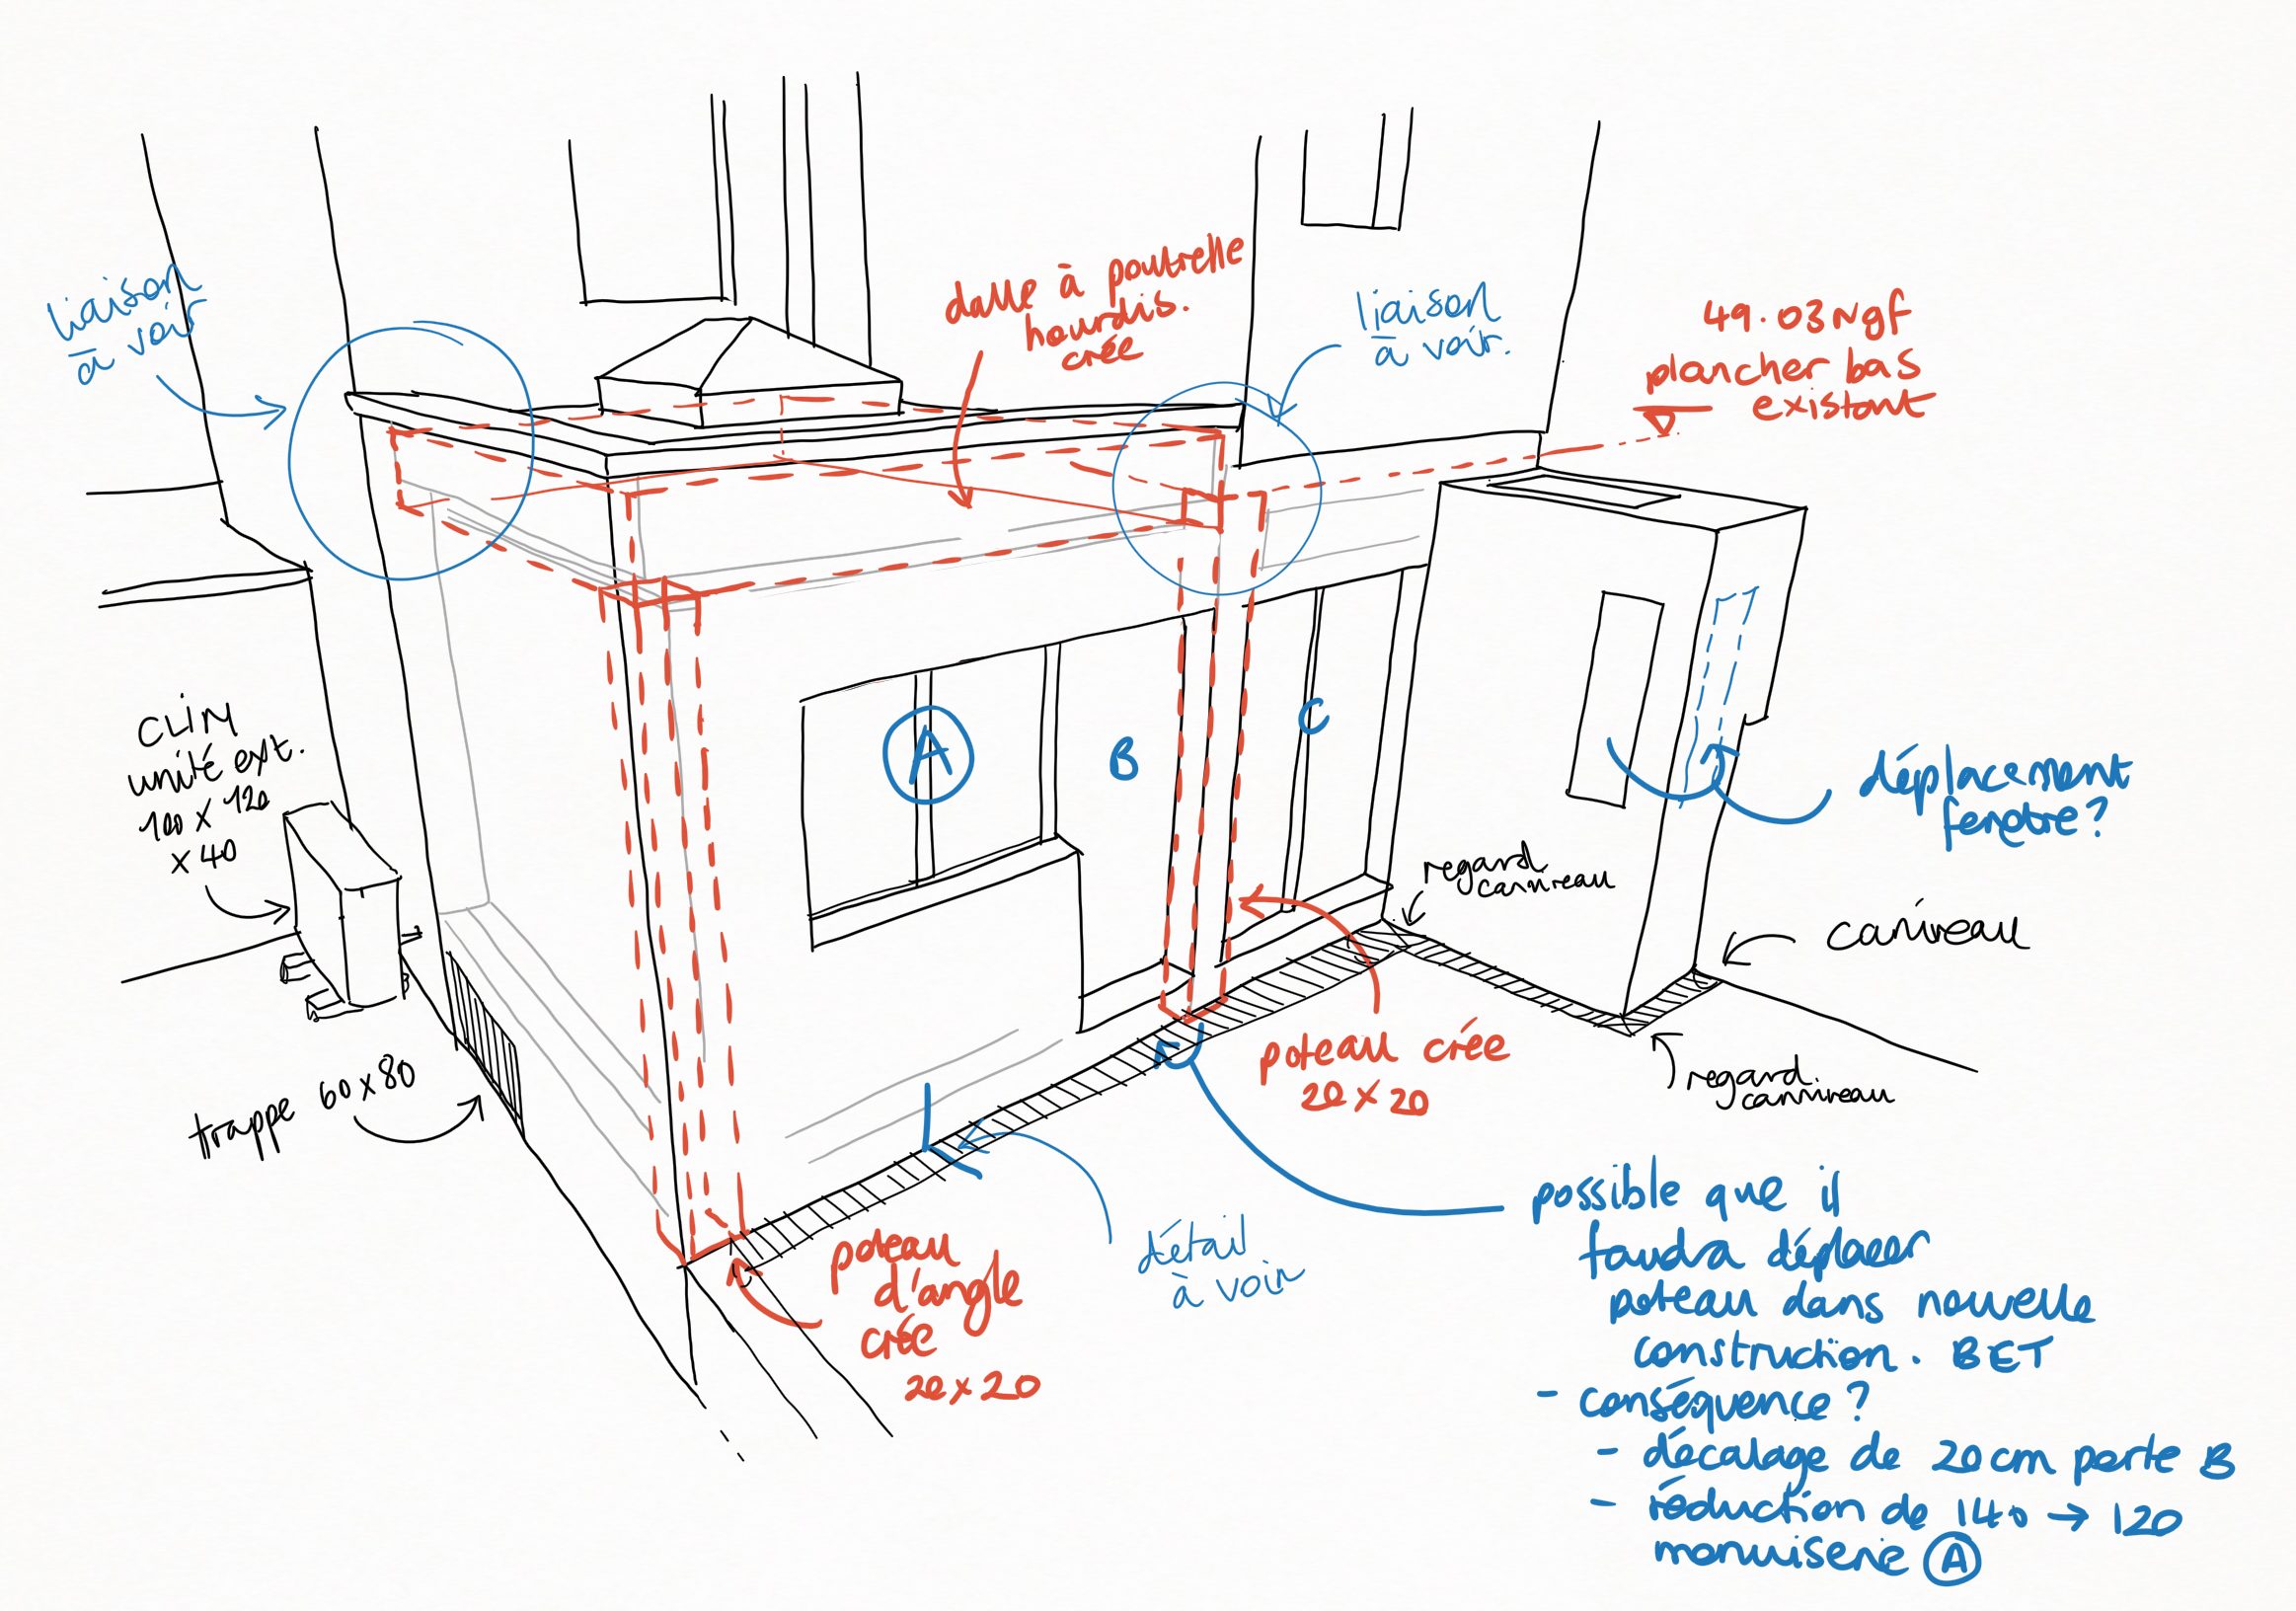 liaison
à voir
dalle à poutrelle
hourdis.
crée
liaison
à voir.
49.03 Ngf
plancher bas
existant
CLIM
unité ext.
100 x 120
x 40
A
B
C
déplacement
fenetre?
regard
caniveau
caniveau
trappe 60 x 80
poteau crée
20 x 20
regard.
caniveau
poteau
d'angle
crée
20 x 20
détail
à voir
possible que il
faudra déplacer
poteau dans nouvelle
construction. BET
- conséquence?
- décalage de 20cm porte B
- réduction de 140 → 120
menuiserie A